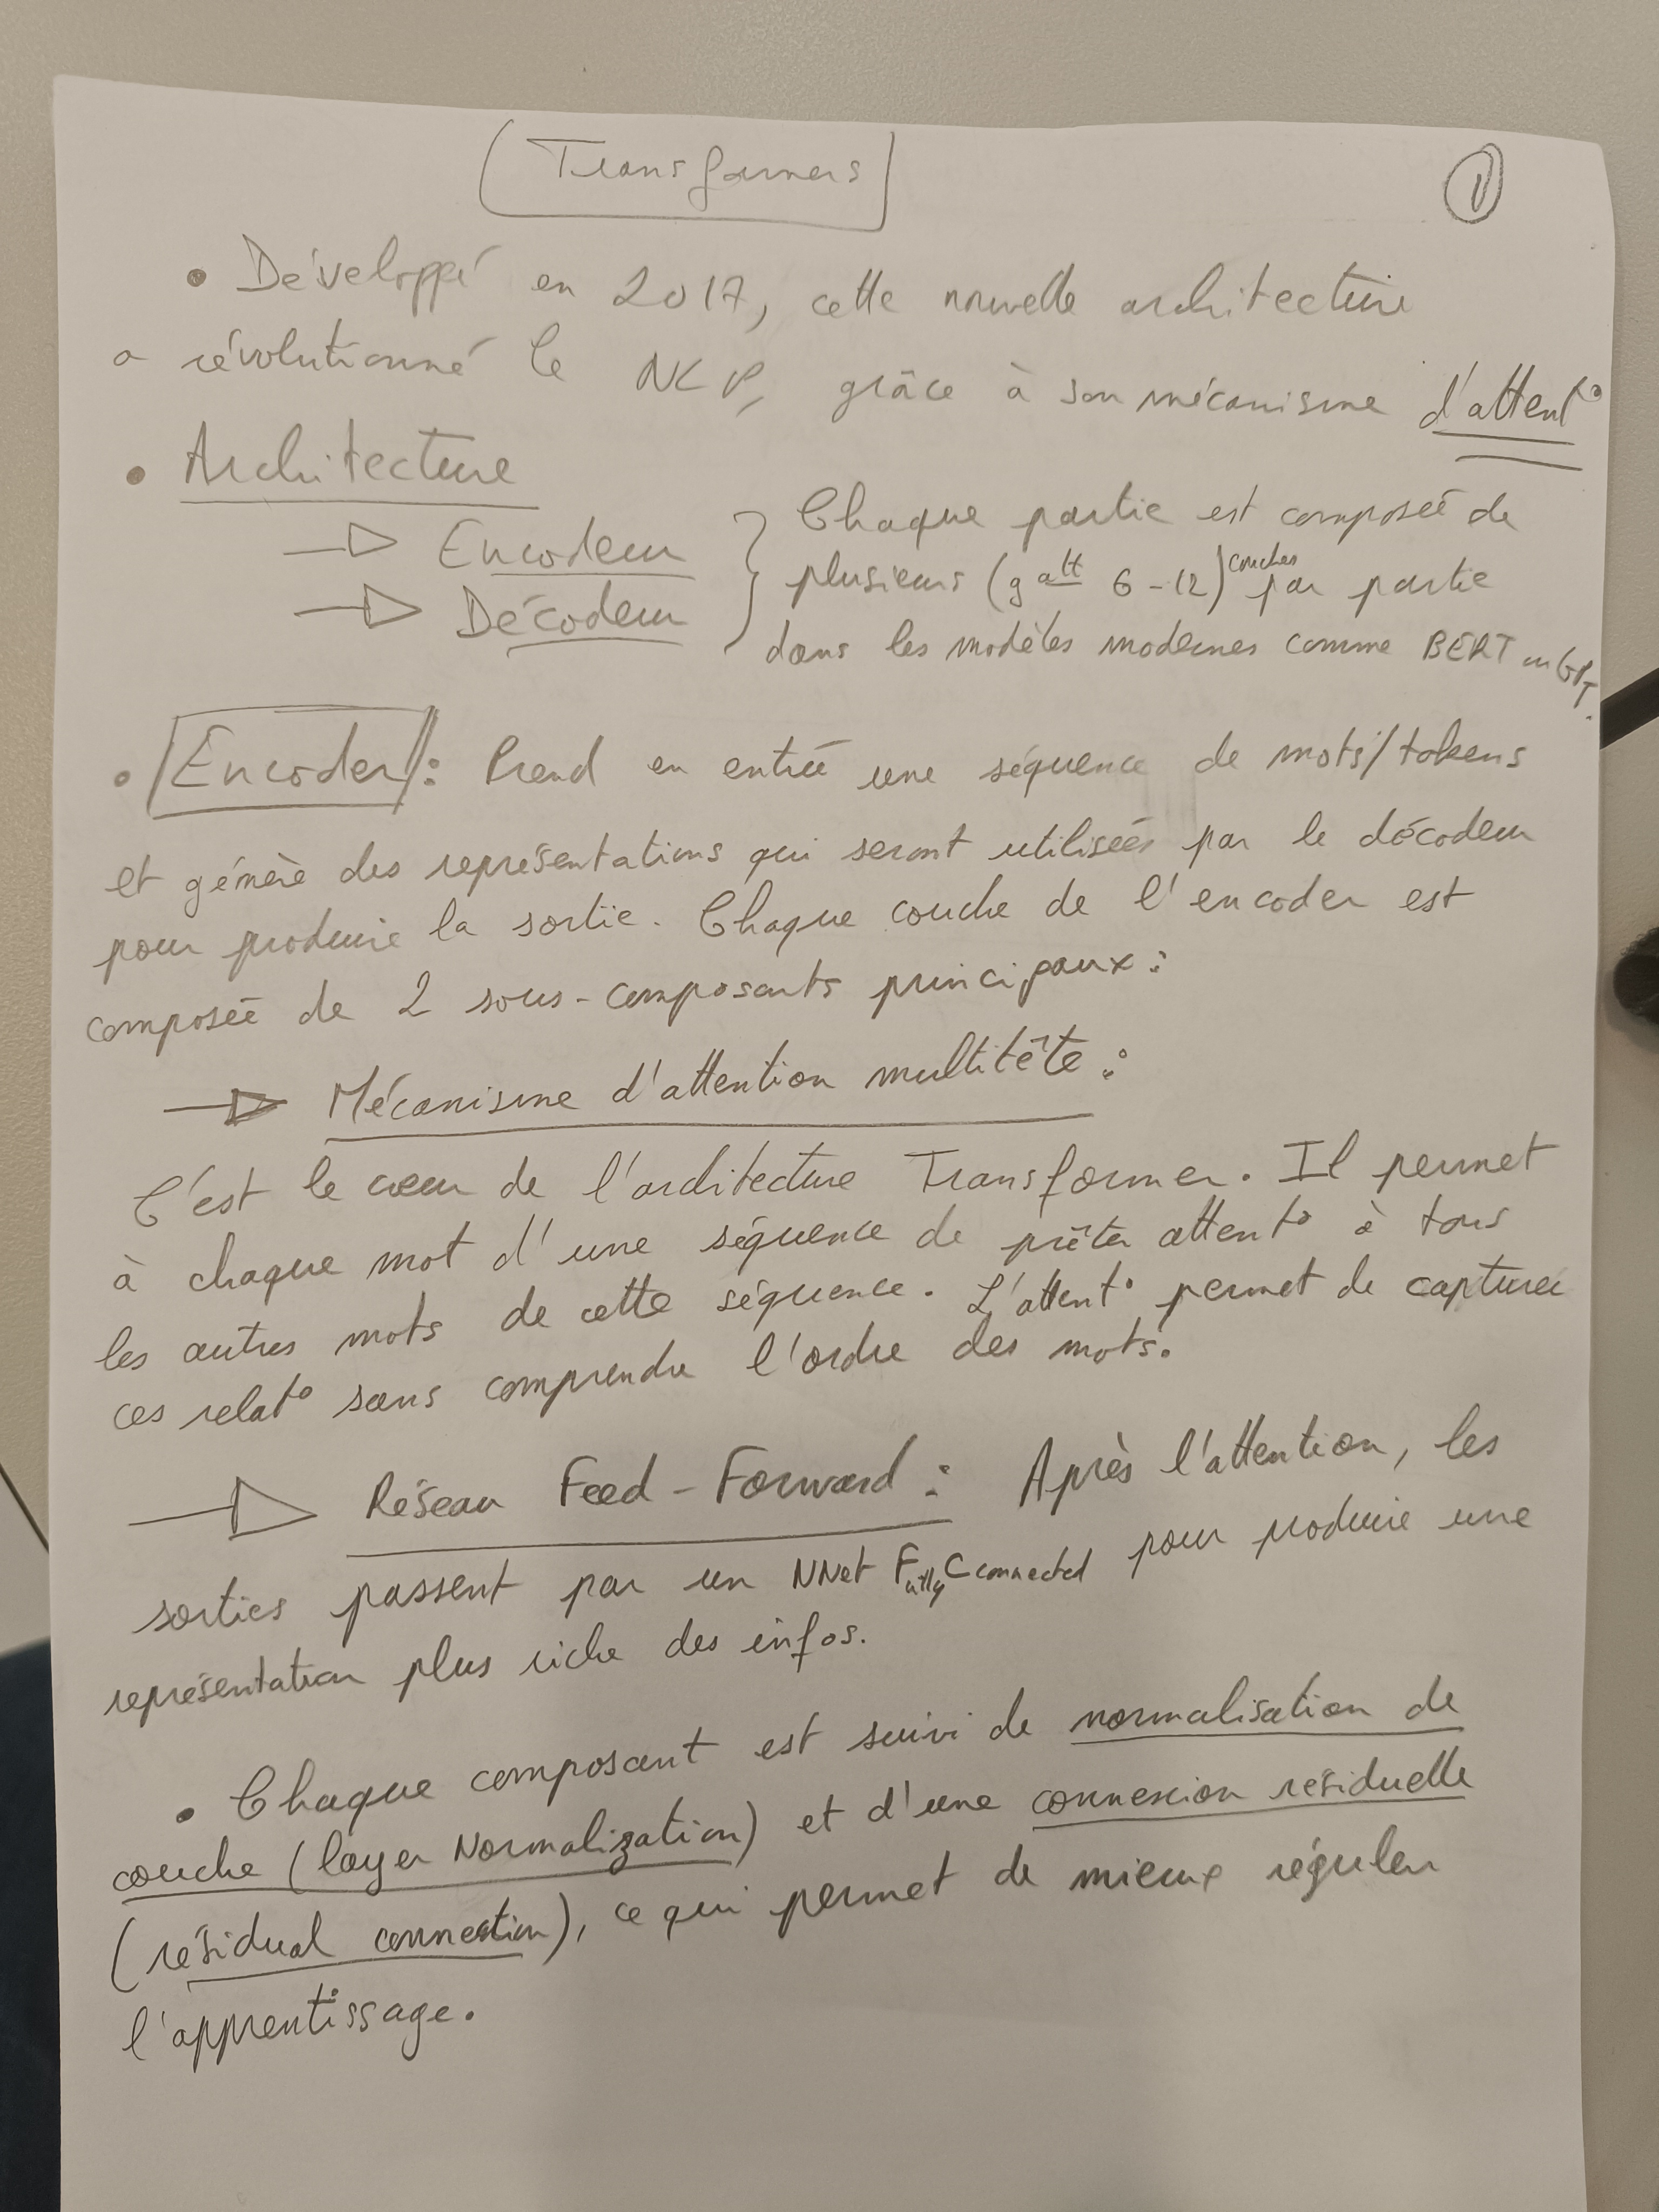 Transformers
1
• Développé en 2017, cette nouvelle architecture
a révolutionné le NLP, grâce à son mécanisme d'attent°
• Architecture
→ Encodeur
→ Décodeur
Chaque partie est composée de
plusieurs (g alt 6-12) couches par partie
dans les modèles modernes comme BERT ou GPT.
• Encoder : Prend en entrée une séquence de mots/tokens
et génère des représentations qui seront utilisées par le décodeur
pour produire la sortie. Chaque couche de l'encoder est
composée de 2 sous-composants principaux :
→ Mécanisme d'attention multitête :
C'est le cœur de l'architecture Transformer. Il permet
à chaque mot d'une séquence de prêter attent° à tous
les autres mots de cette séquence. L'attent° permet de capturer
ces relat° sans comprendre l'ordre des mots.
→ Réseau Feed-Forward : Après l'attention, les
sorties passent par un NNet Fully Connected pour produire une
représentation plus riche des infos.
• Chaque composant est suivi de normalisation de
couche (layer Normalization) et d'une connexion résiduelle
(résidual connection), ce qui permet de mieux réguler
l'apprentissage.